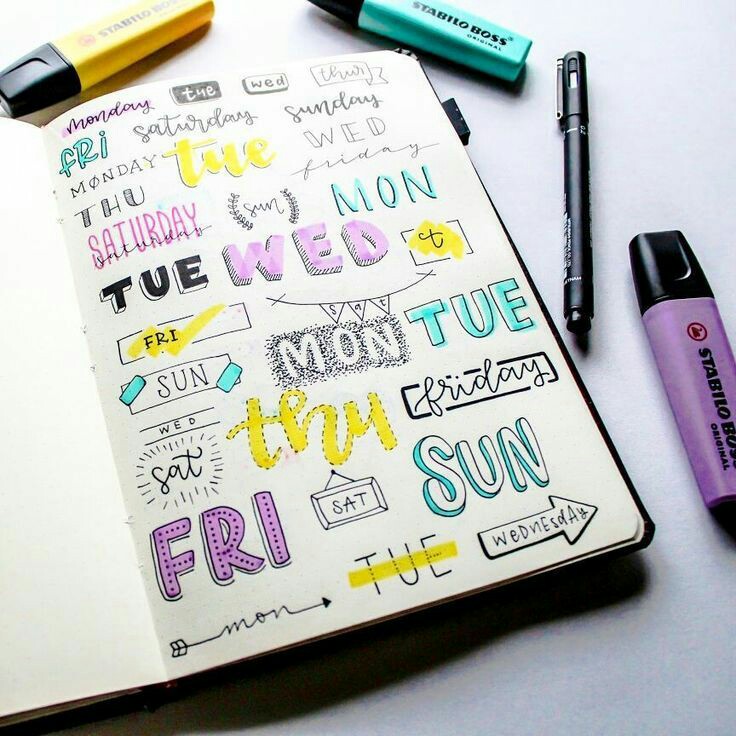 STABILO BOSS
ORIGINAL
STABILO BOSS
ORIGINAL
monday tue wed thur
FRi saturday sunday
MØNDAY tue WED
THU friday
SATURDAY sun MON
saturday
TUE WED t
sat
FRI MON TUE
SUN
WED thu friday
sat SAT SUN
FRI TUE WEDNESDAY
mon
STABILO BOSS
ORIGINAL